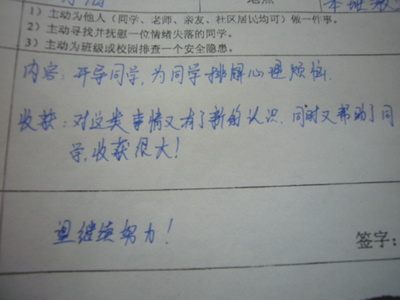 地点
1）主动为他人（同学、老师、亲友、社区居民均可）做一件事。
2）主动寻找并抚慰一位情绪失落的同学。
3）主动为班级或校园排查一个安全隐患。
内容：开导同学，为同学排解心理烦恼.
收获：对这类事情又有了新的认识.同时又帮助了同
学,收获很大！
望继续努力！
签字：